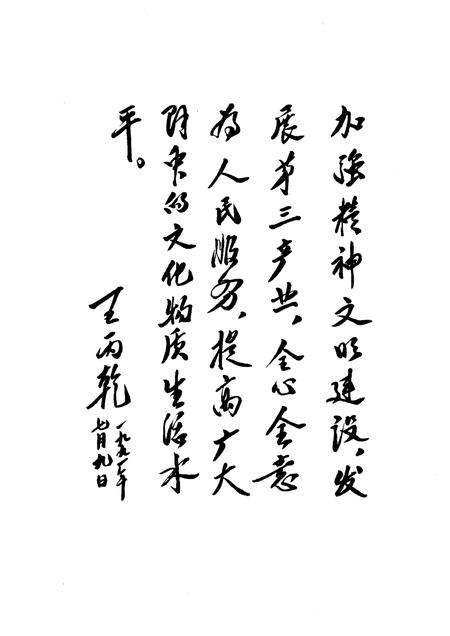 加强精神文明建设、发
展第三产业、全心全意
为人民服务、提高广大
群众的文化物质生活水
平。
王丙乾
一九九一年
七月九日